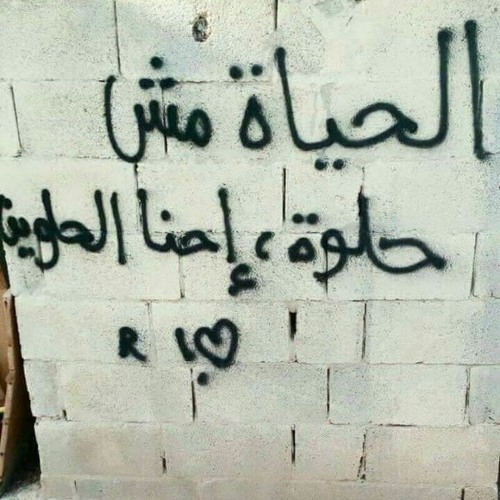 الحياة مش
حلوة، إحنا الحلوين
R ! ♡